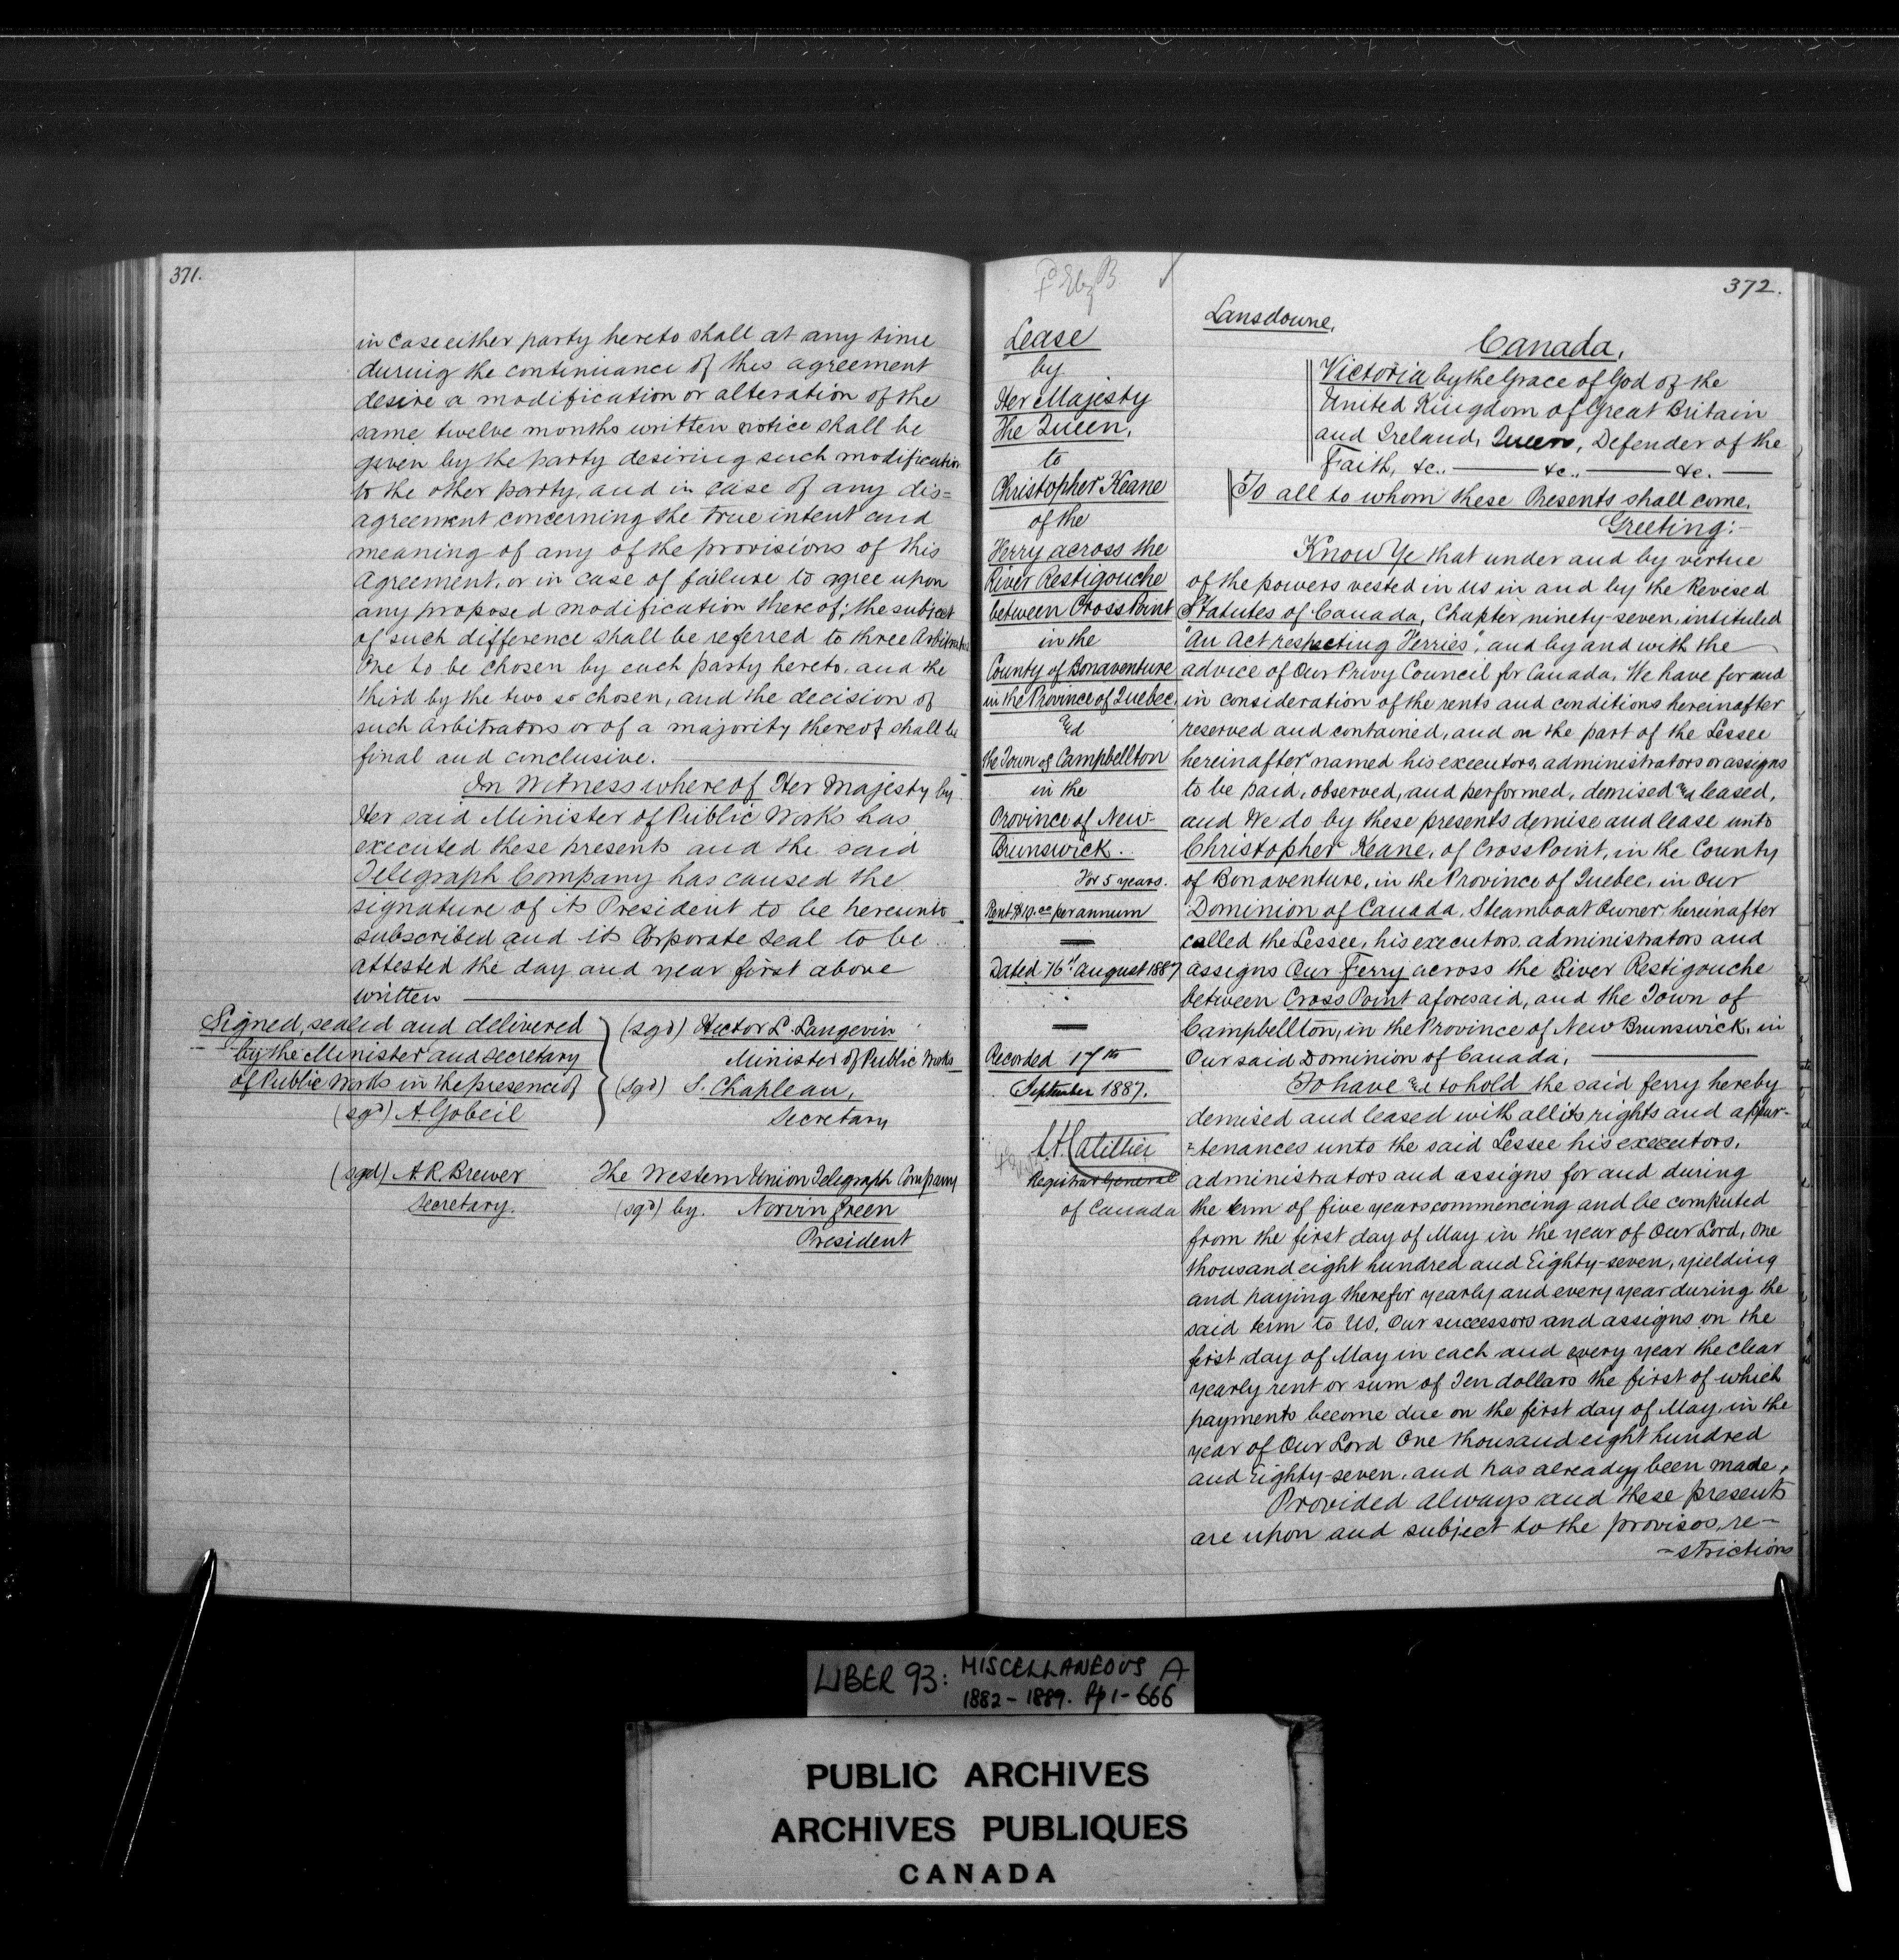 371.
in case either party hereto shall at any time
during the continuance of this agreement
desire a modification or alteration of the
same, twelve months written notice shall be
given by the party desiring such modification
to the other party, and in case of any dis=
agreement concerning the true intent and
meaning of any of the provisions of this
Agreement, or in case of failure to agree upon
any proposed modification thereof; the subject
of such difference shall be referred to three Arbitrators
One to be chosen by each party hereto, and the
third by the two so chosen, and the decision of
such Arbitrators or of a majority thereof shall be
final and conclusive.
In Witness whereof Her Majesty by
Her said Minister of Public Works has
executed these presents and the said
Telegraph Company has caused the
signature of its President to be hereunto
subscribed and its Corporate Seal to be
attested the day and year first above
written
Signed, sealed and delivered
by the Minister and Secretary
of Public Works in the presence of
(sgd) A Gobeil
(sgd) Hector L. Langevin
Minister of Public Works
(sgd) S. Chapleau,
Secretary
(sgd) A. R. Brewer
Secretary.
The Western Union Telegraph Company
(sgd) by. Norvin Green
President
372.
Lease
by
Her Majesty
the Queen,
to
Christopher Keane
of the
Ferry across the
River Restigouche
between Cross Point
in the
County of Bonaventure
in the Province of Quebec,
and
the Town of Campbellton
in the
Province of New-
Brunswick.
For 5 years.
Rent $10.00 per annum
Dated August 1887
Recorded 17th
September 1887.
Registrar General
of Canada
Lansdowne,
Canada,
Victoria by the Grace of God of the
United Kingdom of Great Britain
and Ireland, Queen, Defender of the
Faith, &c., — &c., — &c. —
To all to whom these Presents shall come,
Greeting:—
Know Ye that under and by virtue
of the powers vested in us in and by the Revised
Statutes of Canada, Chapter ninety-seven, intituled
"An Act respecting Ferries", and by and with the
advice of Our Privy Council for Canada, We have for and
in consideration of the rents and conditions hereinafter
reserved and contained, and on the part of the Lessee
hereinafter named his executors, administrators or assigns
to be paid, observed, and performed, demised and leased,
and We do by these presents demise and lease unto
Christopher Keane, of Cross Point, in the County
of Bonaventure, in the Province of Quebec, in Our
Dominion of Canada, Steamboat Owner, hereinafter
called the Lessee, his executors, administrators and
assigns Our Ferry across the River Restigouche
between Cross Point aforesaid, and the Town of
Campbellton, in the Province of New Brunswick, in
Our said Dominion of Canada;
To have and to hold the said ferry hereby
demised and leased with all its rights and appur-
=tenances unto the said Lessee his executors,
administrators and assigns for and during
the term of five years commencing and be computed
from the first day of May in the year of Our Lord, One
thousand eight hundred and Eighty-seven, yielding
and paying therefor yearly and every year during the
said term to Us, Our successors and assigns on the
first day of May in each and every year the clear
yearly rent or sum of Ten dollars the first of which
payments become due on the first day of May, in the
year of Our Lord One thousand eight hundred
and Eighty-seven, and has already been made,
Provided always and these presents
are upon and subject to the provisos, re-
-strictions
LIBER 93: MISCELLANEOUS A
1882-1889. Pp 1-666
PUBLIC ARCHIVES
ARCHIVES PUBLIQUES
CANADA